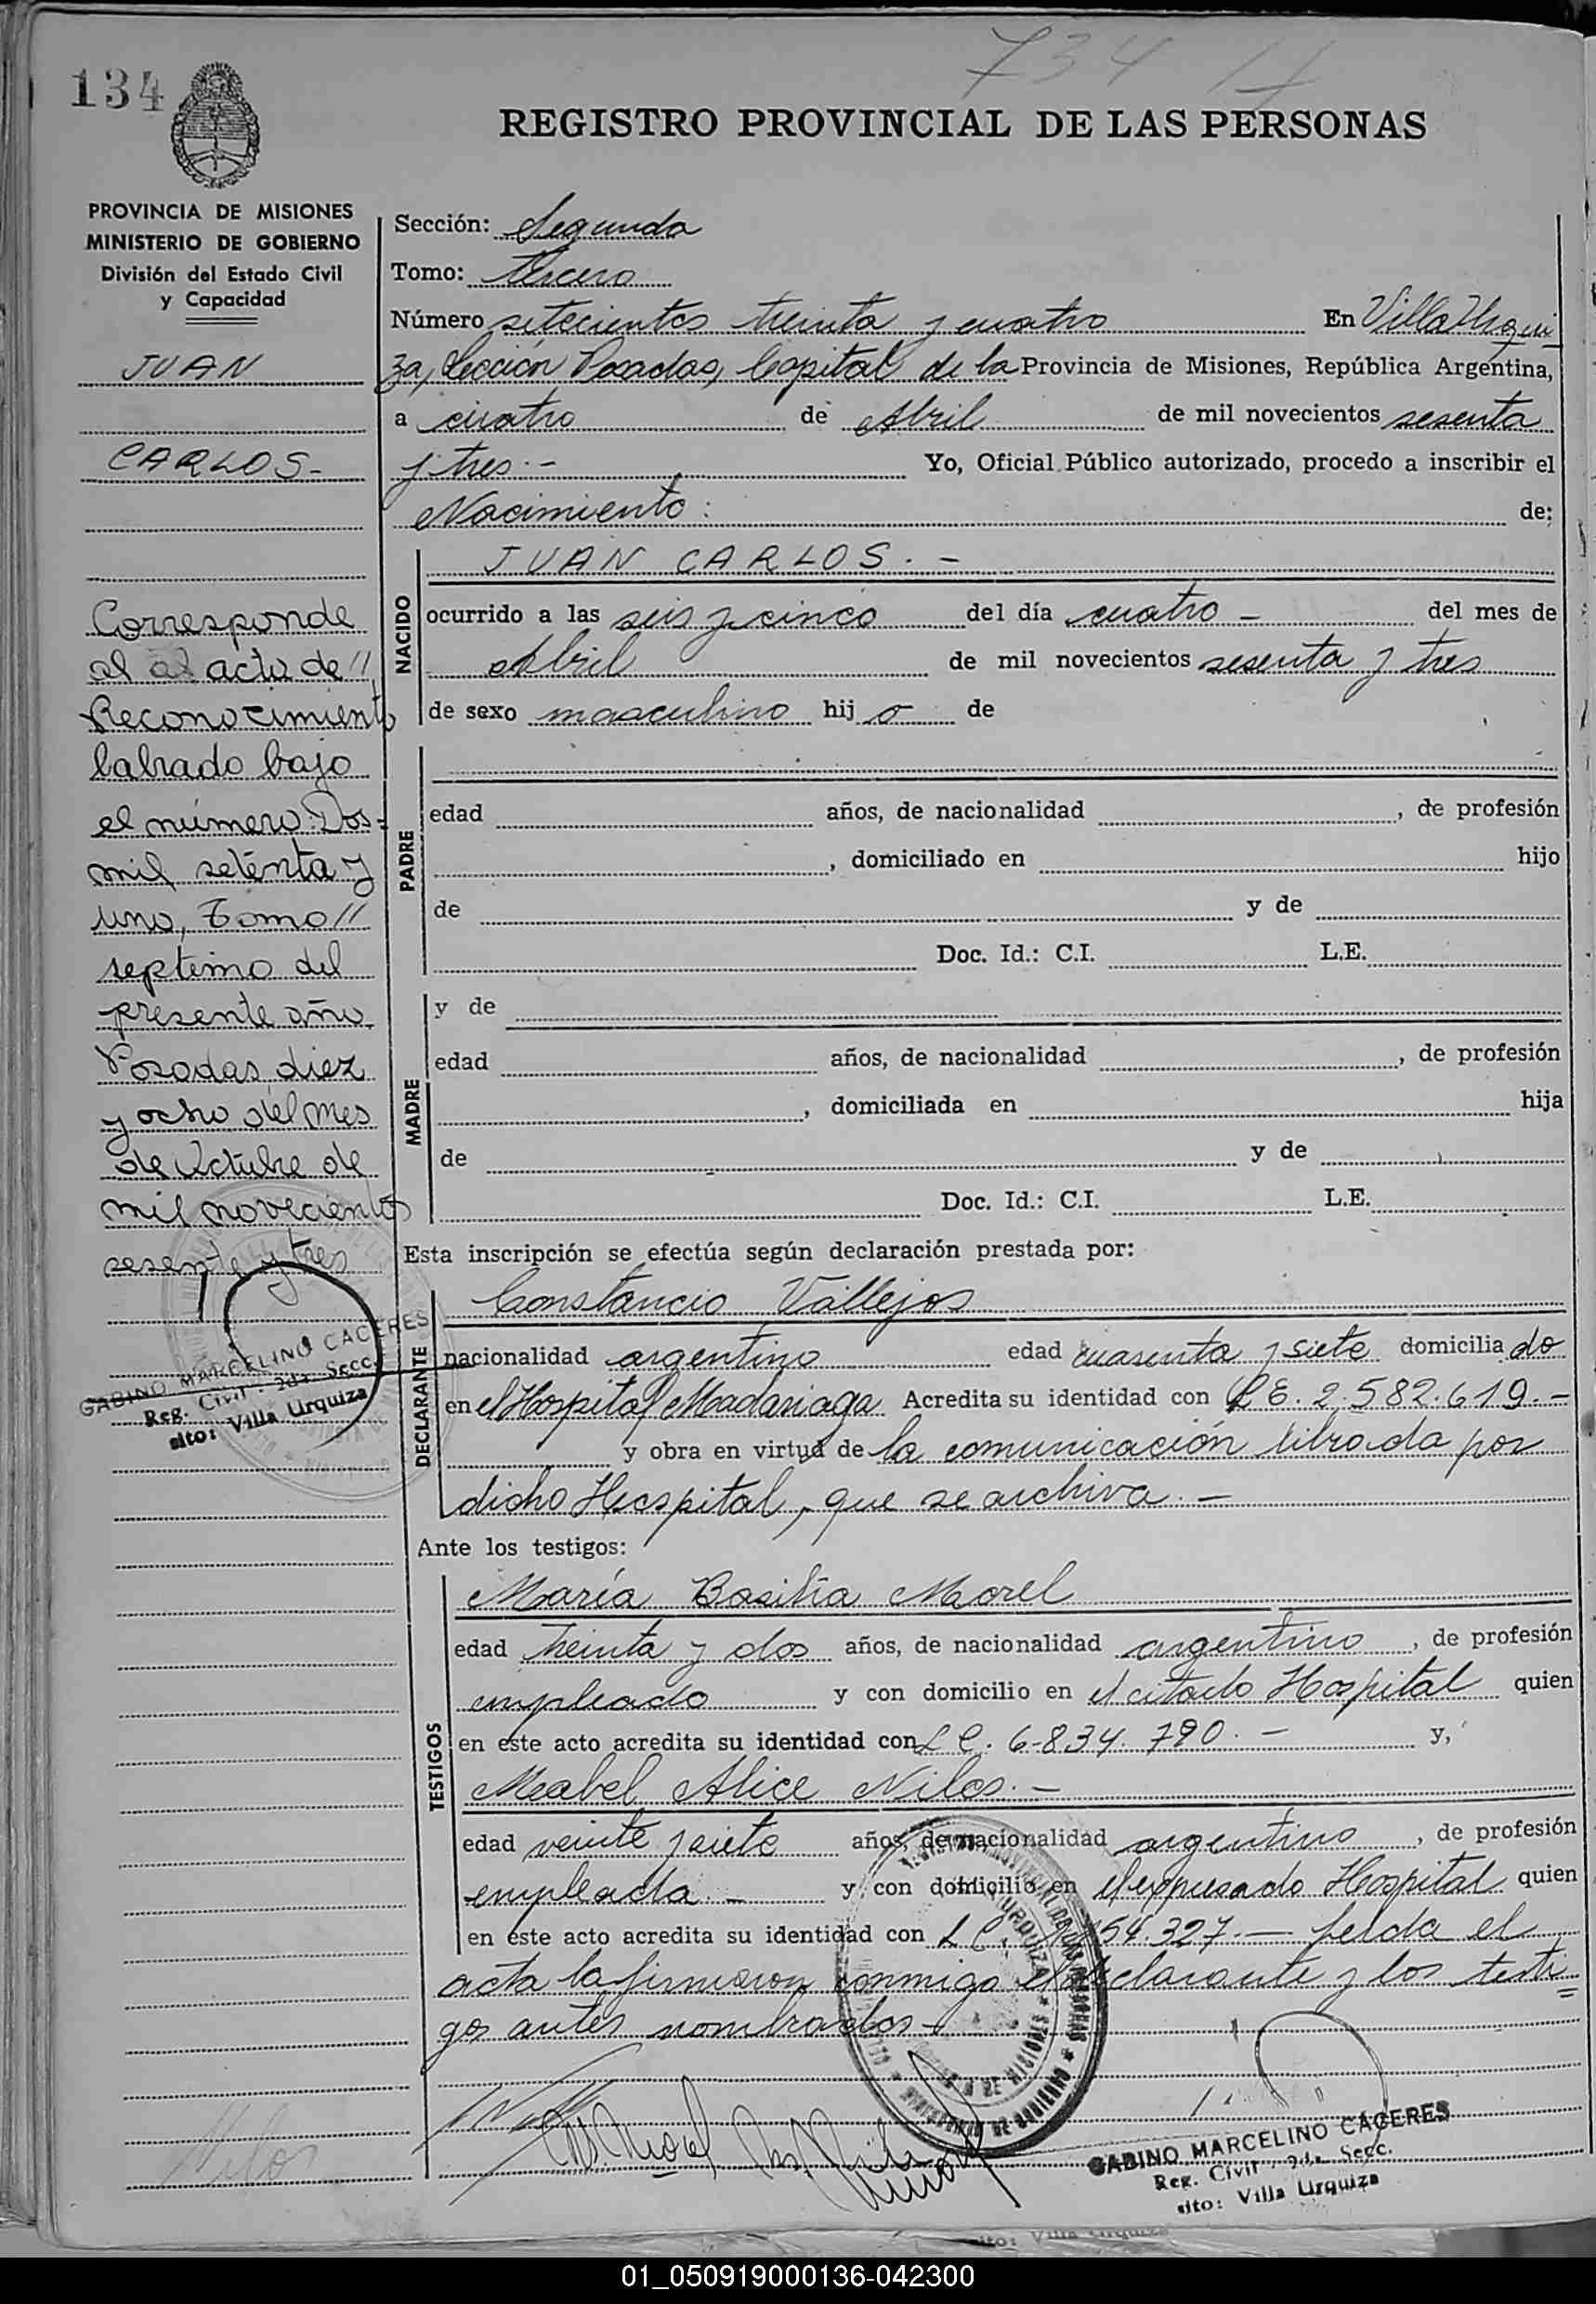 134
734
REGISTRO PROVINCIAL DE LAS PERSONAS
PROVINCIA DE MISIONES
MINISTERIO DE GOBIERNO
División del Estado Civil
y Capacidad
JUAN
CARLOS-
Corresponde
al al acta de "
Reconocimiento
labrado bajo
el número: Dos-
mil seténta y
uno, Tomo "
septimo del
presente año
Posadas, diez
y ocho del mes
de Octubre de
mil novecientos
sesenta y tres
GABINO MARCELINO CACERES
Reg. Civil - 2da. Secc.
sito: Villa Urquiza
Sección: Segunda
Tomo: tercero
Número setecientos treinta y cuatro En Villa Urqui
za, Sección Posadas, Capital de la Provincia de Misiones, República Argentina,
a cuatro de Abril de mil novecientos sesenta
y tres.- Yo, Oficial Público autorizado, procedo a inscribir el
Nacimiento: de:
NACIDO
JUAN CARLOS.-
ocurrido a las seis y cinco del día cuatro - del mes de
Abril de mil novecientos sesenta y tres
de sexo masculino hij o de
PADRE
edad años, de nacionalidad , de profesión
, domiciliado en hijo
de y de
Doc. Id.: C.I. L.E.
MADRE
y de
edad años, de nacionalidad , de profesión
, domiciliada en hija
de y de
Doc. Id.: C.I. L.E.
Esta inscripción se efectúa según declaración prestada por:
DECLARANTE
Constancio Vallejos
nacionalidad argentino edad cuarenta y siete domicilia do
en el Hospital Madariaga Acredita su identidad con L E. 2.582.619.-
y obra en virtud de la comunicación librada por
dicho Hospital, que se archiva.-
Ante los testigos:
TESTIGOS
María Basilia Morel
edad treinta y dos años, de nacionalidad argentino , de profesión
empleado y con domicilio en el citado Hospital quien
en este acto acredita su identidad con L C. 6.834.790.- y,
Mabel Alice Nilos.-
edad veinte y siete años, de nacionalidad argentino , de profesión
empleada.- y con domicilio en el expresado Hospital quien
en este acto acredita su identidad con L C. 54.327.- Leída el
acta la firmaron conmigo el declarante y los testi
gos antes nombrados-
GABINO MARCELINO CÁCERES
Reg. Civil - 2da. Secc.
sito: Villa Urquiza
01_050919000136-042300